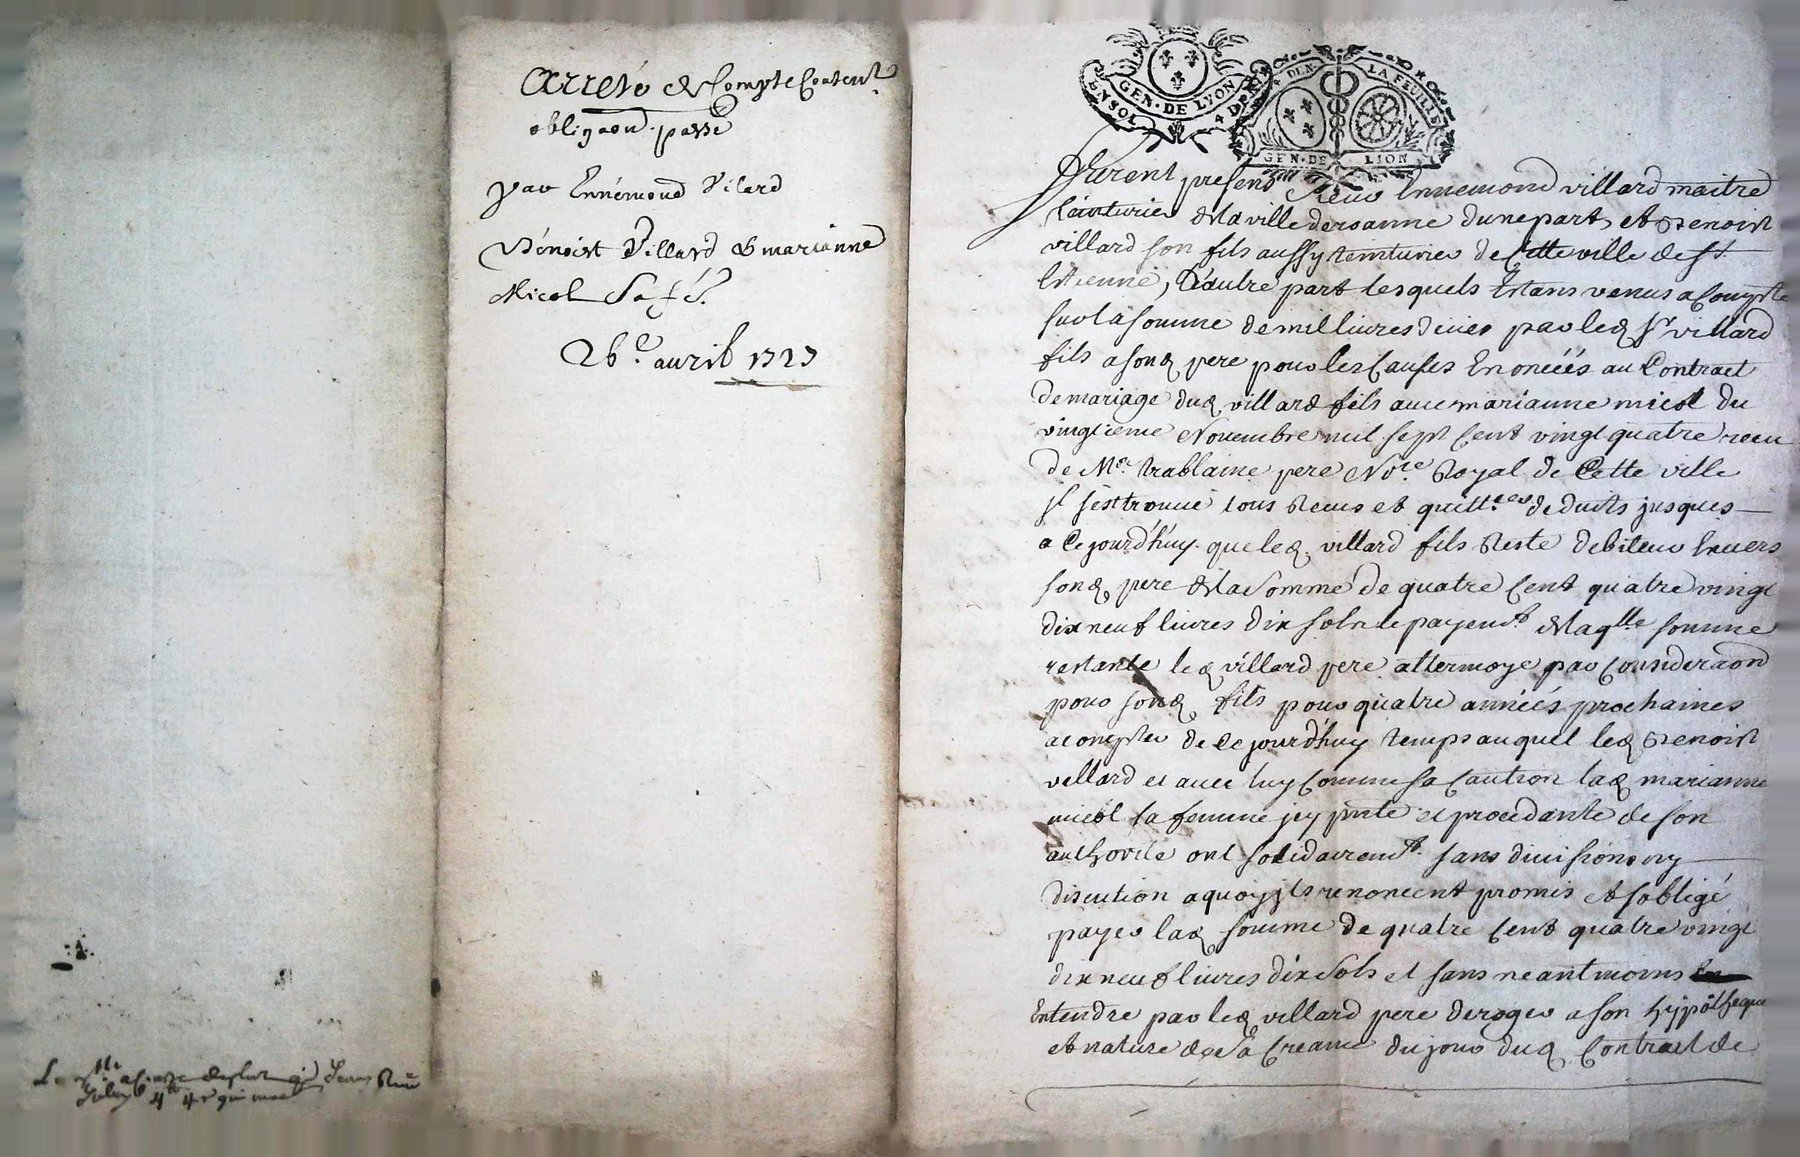 Arreté de Compte Conten.t
obligaon. passé
par Ennémond Vilard
Bénoist Villard & marianne
Micol Sa fé.
26.e auril 1727
GEN · DE LYON
4 DEN. LA FEUILLE
GEN · DE LION
Furent presens Sieur Ennemond villard maitre
teinturier de la ville de roanne dune part, et Benoist
villard son fils aussy teinturier de Cette ville de St.
Estienne, D'autre part lesquels Estans venus a Compte
sur la somme de mil liures deues par led. Sr. villard
fils a sond. pere pour les Causes Enoncéés au Contract
de mariage dud. villard fils auec marianne micol du
vingtieme Nouembre mil sept Cent vingt quatre receu
de Me. trablaine pere No.re Royal de Cette ville
Il s'est trouué tous Receus et quitt.ces deduits jusques
a Ce jourd'huy que led. villard fils Reste debiteur Enuers
sond. pere de la somme de quatre Cent quatre vingt
dix neuf liures dix sols le payemt. de laqlle somme
restante led. villard pere attermoye par Consideraon
pour sond. fils pour quatre annéés prochaines
a compter de Ce jourd'huy temps auquel led. Benoist
villard et auec luy Comme sa Caution lad. marianne
micol sa femme jcy pnte et procedante de son
authorité ont solidairemt. sans diuision ny
discution a quoy jls renoncent promis et s'obligé
payer lad. somme de quatre Cent quatre vingt
dix neuf liures dix sols et sans neantmoins
Entendre par led. villard pere deroger a son hypotheque
et nature de sa Creance du jour dud. Contract de